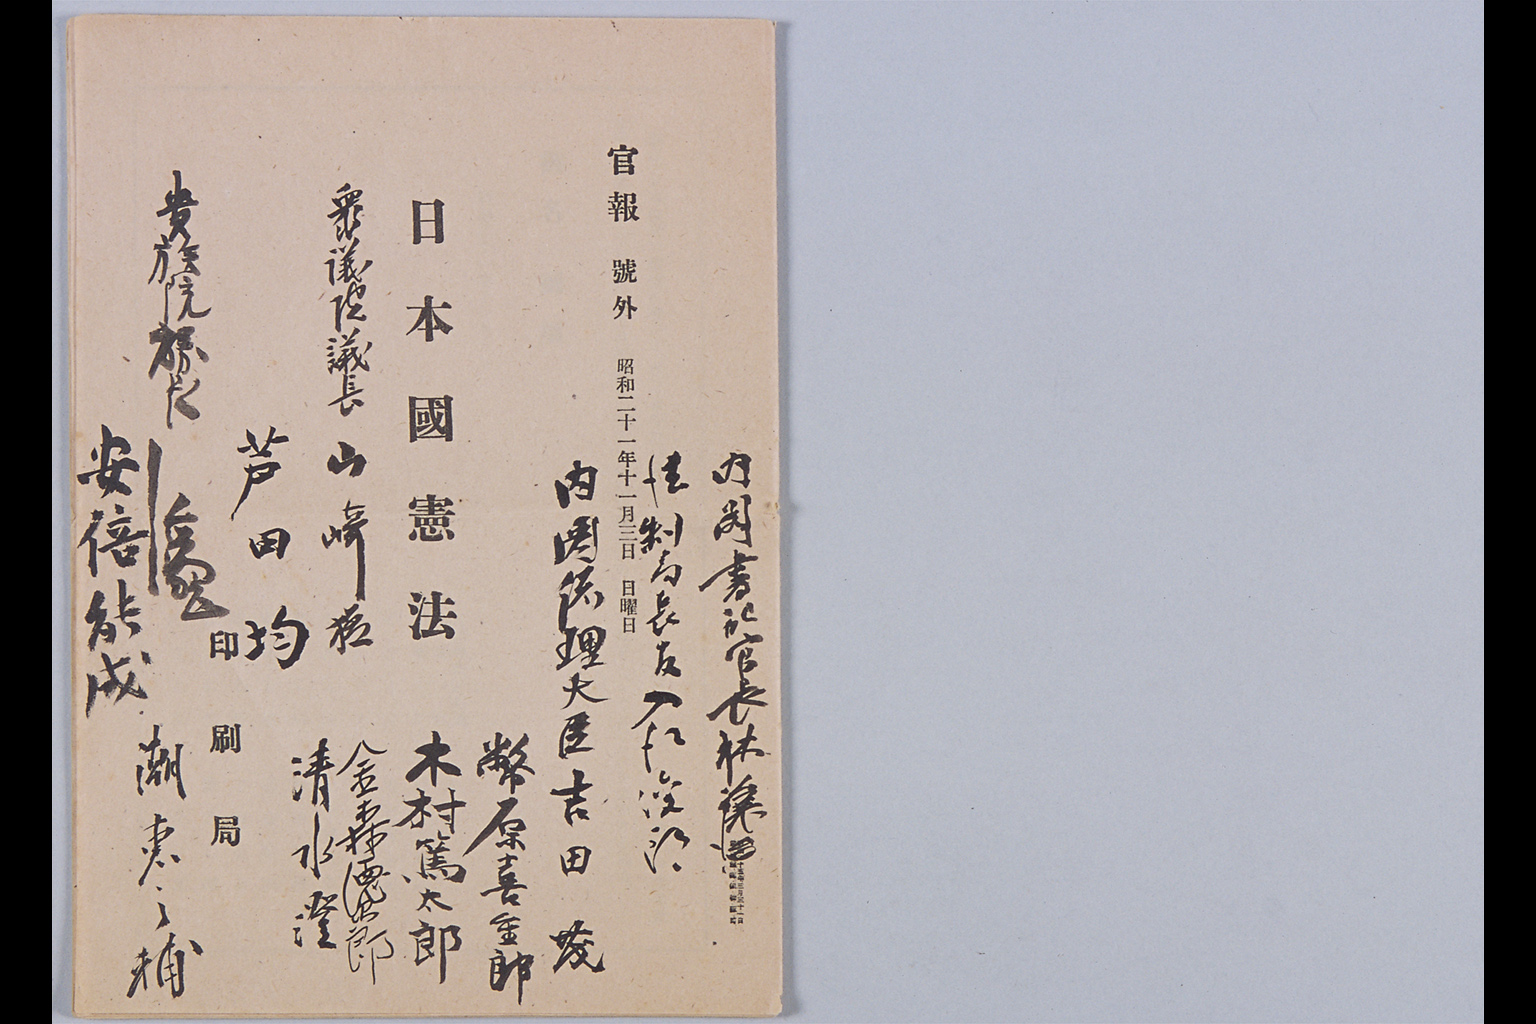 内閣書記官長林讓治
法制局長官入江俊郎
官報 號外 昭和二十一年十一月三日 日曜日
内閣総理大臣吉田茂
幣原喜重郎
日本國憲法
木村篤太郎
衆議院議長 山崎猛
金森徳次郎
清水澄
芦田均
印刷局
貴族院議長
潮恵之輔
安倍能成